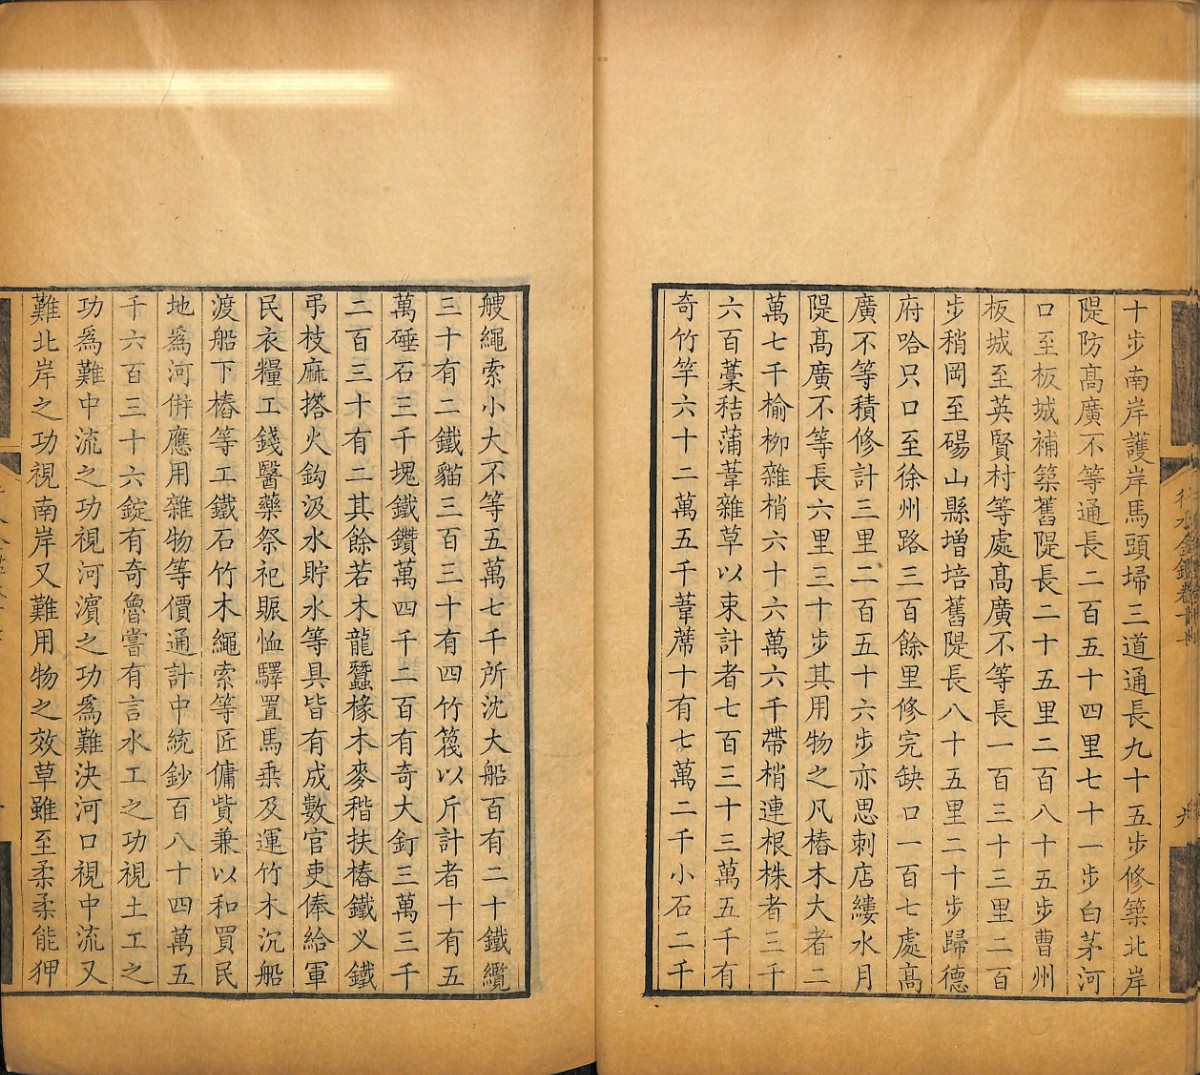 十步南岸護岸馬頭埽三道通長九十五步修築北岸
隄防高廣不等通長二百五十四里七十一步白茅河
口至板城補築舊隄長二十五里二百八十五步曹州
板城至英賢村等處高廣不等長一百三十三里二百
步稍岡至碭山縣增培舊隄長八十五里二十步歸德
府哈只口至徐州路三百餘里修完缺口一百七處高
廣不等積修計三里二百五十六步亦思剌店縷水月
隄高廣不等長六里三十步其用物之凡樁木大者二
萬七千榆柳雜梢六十六萬六千帶梢連根株者三千
六百藁秸蒲葦雜草以束計者七百三十三萬五千有
奇竹竿六十二萬五千葦蓆十有七萬二千小石二千
艘繩索小大不等五萬七千所沈大船百有二十鐵纜
三十有二鐵貓三百三十有四竹篾以斤計者十有五
萬硾石三千塊鐵鑽萬四千二百有奇大釘三萬三千
二百三十有二其餘若木龍蠶椽木麥稭扶樁鐵乂鐵
弔枝麻搭火鈎汲水貯水等具皆有成數官吏俸給軍
民衣糧工錢醫藥祭祀賑恤驛置馬乘及運竹木沉船
渡船下樁等工鐵石竹木繩索等匠傭貲兼以和買民
地為河併應用雜物等價通計中統鈔百八十四萬五
千六百三十六錠有奇魯嘗有言水工之功視土工之
功為難中流之功視河濱之功為難決河口視中流又
難北岸之功視南岸又難用物之效草雖至柔柔能狎